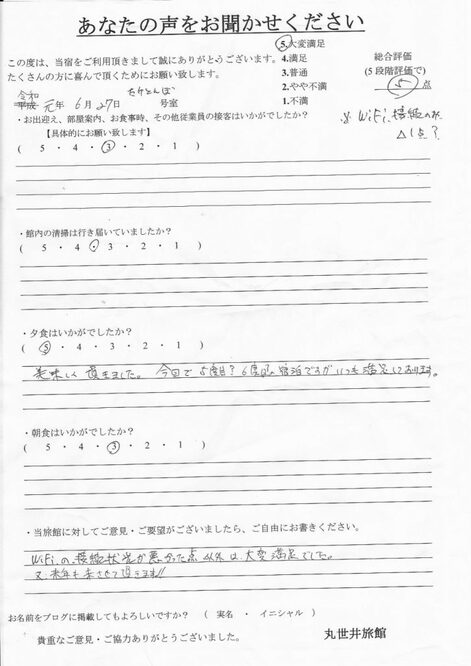 あなたの声をお聞かせください
この度は、当宿をご利用頂きまして誠にありがとうございます。
たくさんの方に喜んで頂くためにお願い致します。
5.大変満足
4.満足
3.普通
2.やや不満
1.不満
総合評価
(5段階評価で)
5 点
※ WiFi 接続のみ
△1点?
令和
平成 元年 6月 27日 たけとんぼ 号室
・お出迎え、部屋案内、お食事時、その他従業員の接客はいかがでしたか?
【具体的にお願い致します】
( 5 ・ 4 ・ 3 ・ 2 ・ 1 )
・館内の清掃は行き届いていましたか?
( 5 ・ 4 ・ 3 ・ 2 ・ 1 )
・夕食はいかがでしたか?
( 5 ・ 4 ・ 3 ・ 2 ・ 1 )
美味しく頂きました。今回で5度目?6度目の宿泊ですがいつも満足しております。
・朝食はいかがでしたか?
( 5 ・ 4 ・ 3 ・ 2 ・ 1 )
・当旅館に対してご意見・ご要望がございましたら、ご自由にお書きください。
WiFiの接続状況が悪かった点以外は、大変満足でした。
又、来年も来させて頂きます!!
お名前をブログに掲載してもよろしいですか? ( 実名 ・ イニシャル )
貴重なご意見・ご協力ありがとうございました。
丸世井旅館